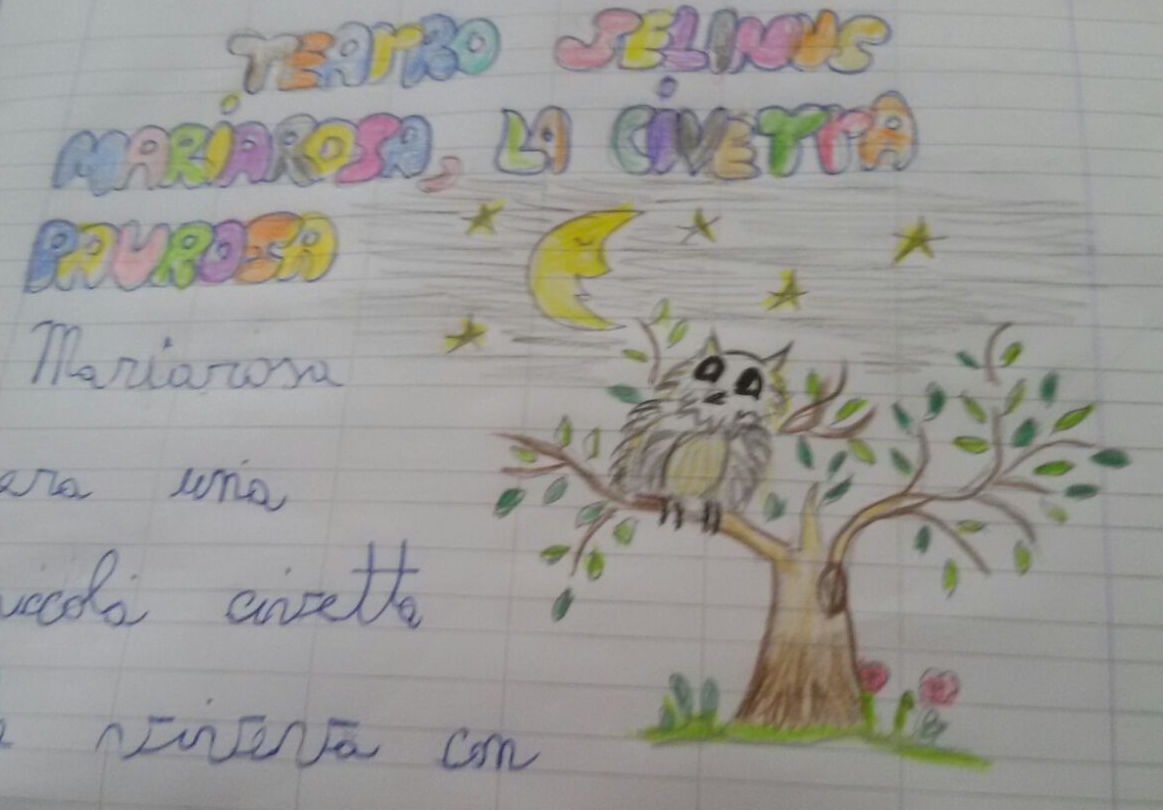 TEATRO SELINUS
MARIAROSA, LA CIVETTA
PAUROSA
Mariarosa
era una
iccola civetta
e viveva con